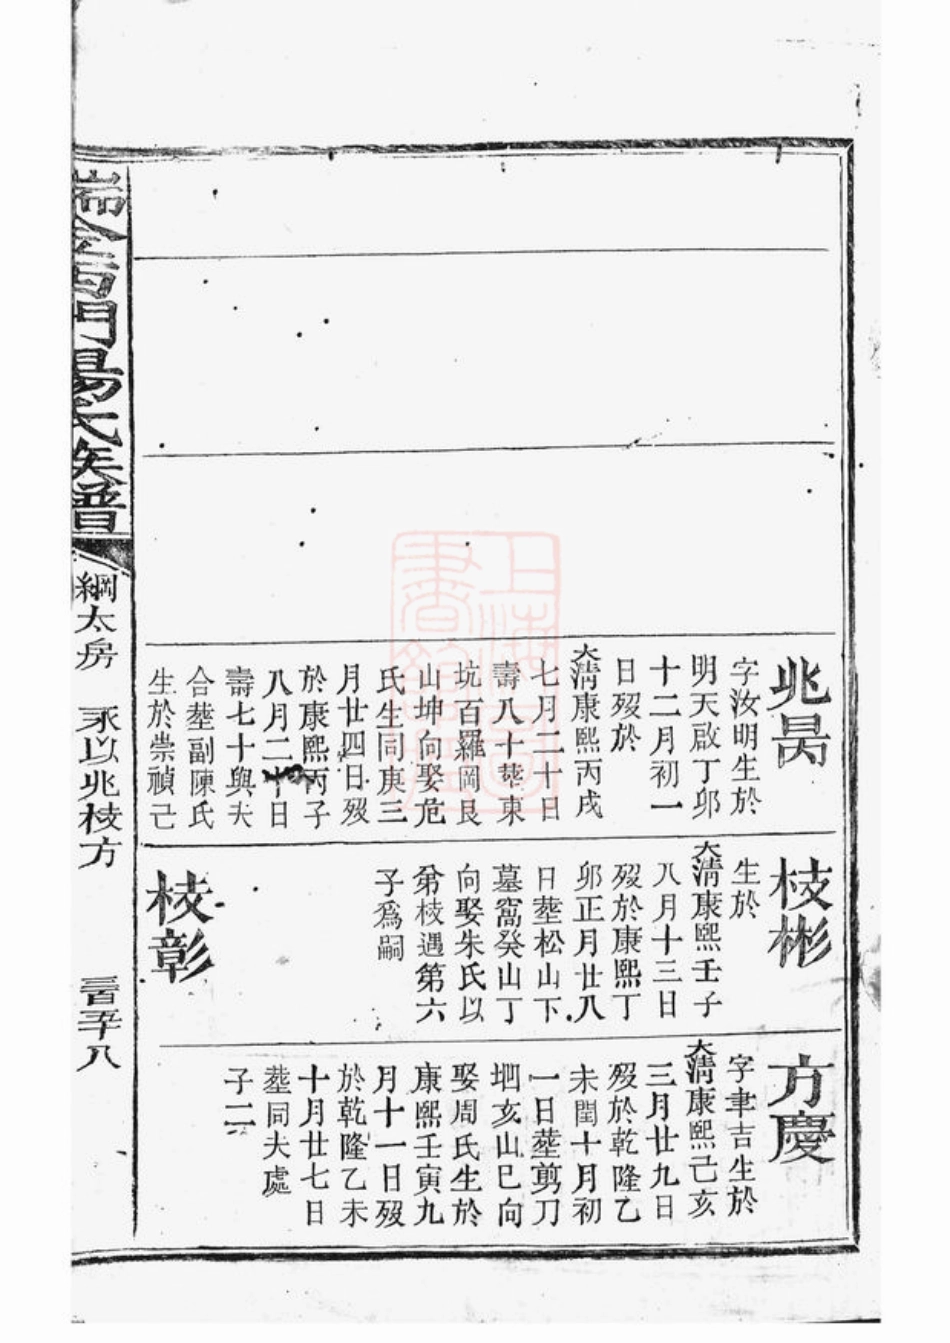 兆昺
字汝明生於
明天啟丁卯
十二月初一
日歿於
大清康熙丙戌
七月二十日
壽八十塟東
坑百羅岡艮
山坤向娶危
氏生同庚三
月廿四日歿
於康熙丙子
八月二十日
壽七十與夫
合塟副陳氏
生於崇禎己
枝彬
生於
大清康熙壬子
八月十三日
歿於康熙丁
卯正月廿八
日塟松山下
墓窩癸山丁
向娶朱氏以
弟枝遇第六
子爲嗣
枝彰
方慶
字聿吉生於
大清康熙己亥
三月廿九日
歿於乾隆乙
未閏十月初
一日塟剪刀
坵亥山巳向
娶周氏生於
康熙壬寅九
月十一日歿
於乾隆乙未
十月廿七日
塟同夫處
子二
瑞金西門楊氏族譜
綱太房
永以兆枝方
三百五十八
上海圖書館藏